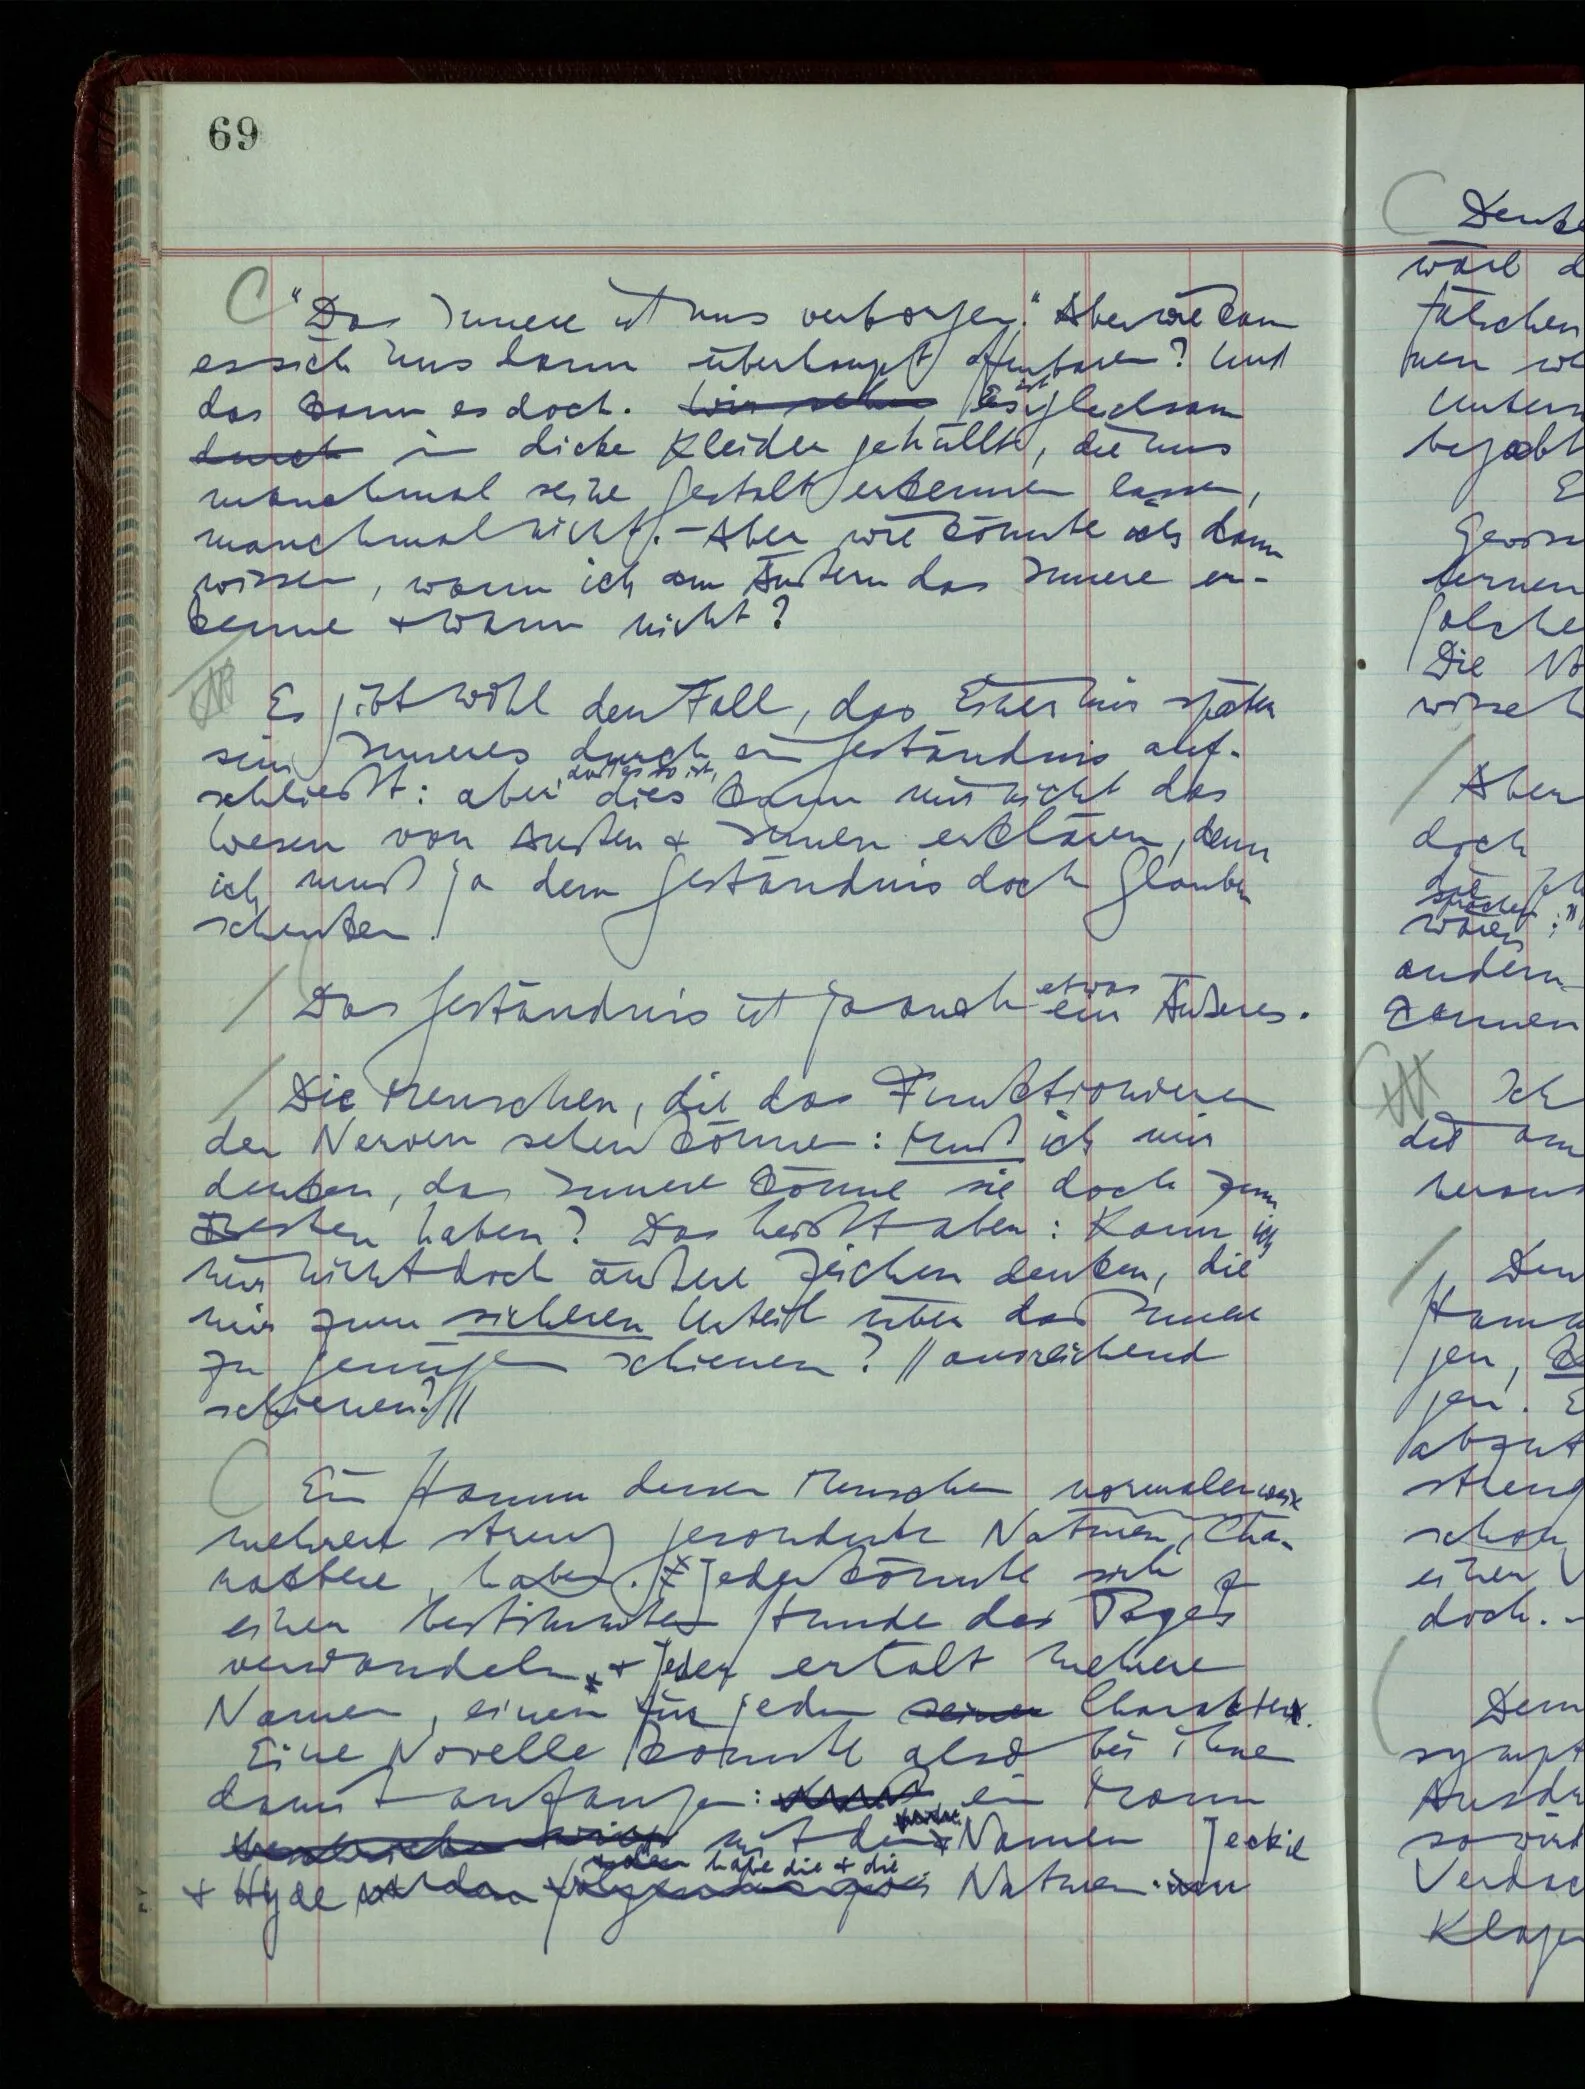 69
"Das Innere ist uns verborgen." Aber wie kann
es sich uns dann überhaupt offenbaren? Und
das kann es doch. Wir sehen Es ist gleichsam
durch in dicke Kleider gehüllt, die uns
manchmal seine Gestalt erkennen lassen,
manchmal nicht. – Aber wie könnte ich dann
wissen, wann ich am Äußern das Innere er-
kenne + wann nicht?
Es gibt wohl den Fall, daß Einer mir später
sein Inneres durch ein Geständnis auf-
schließt: aber, daß es so ist, dies kann mir nicht das
Wesen von Außen + Innen erklären, denn
ich muß ja dem Geständnis doch Glauben
schenken.
Das Geständnis ist ja auch etwas ein Äußeres.
Die Menschen, die das Funktionieren
der Nerven sehen können: Muß ich mir
denken, das Innere könne sie doch zum
Besten haben? Das heißt aber: Kann ich
mir nicht doch äußere Zeichen denken, die
mir zum sicheren Urteil über das Innere
zu genügen schienen? // ausreichend
schienen? //
Ein Stamm dessen Menschen normalerweise
mehrere streng gesonderte Naturen, Cha-
raktere, haben. Jeder könnte sich z
einer bestimmten Stunde des Tages
verwandeln, + Jeder erhält mehrere
Namen, einen für jeden seiner Charakter.
Eine Novelle könnte also bei ihne
damit anfangen: ein Mann
beschrieben wird mit den Namen Jeckil
+ Hyde habe die + die Naturen.
Denke
wäre d
fälschen
nen we
Unters
bejaht
E
Gewiss
lernen
solche
Die
Aber
doch
sprächen
wären;
andern
Ich
det am
heraus
Den
gen,
gen. E
streng
schon
einen
doch.
Dem
sympt
Ausdr
so wird
Verdac